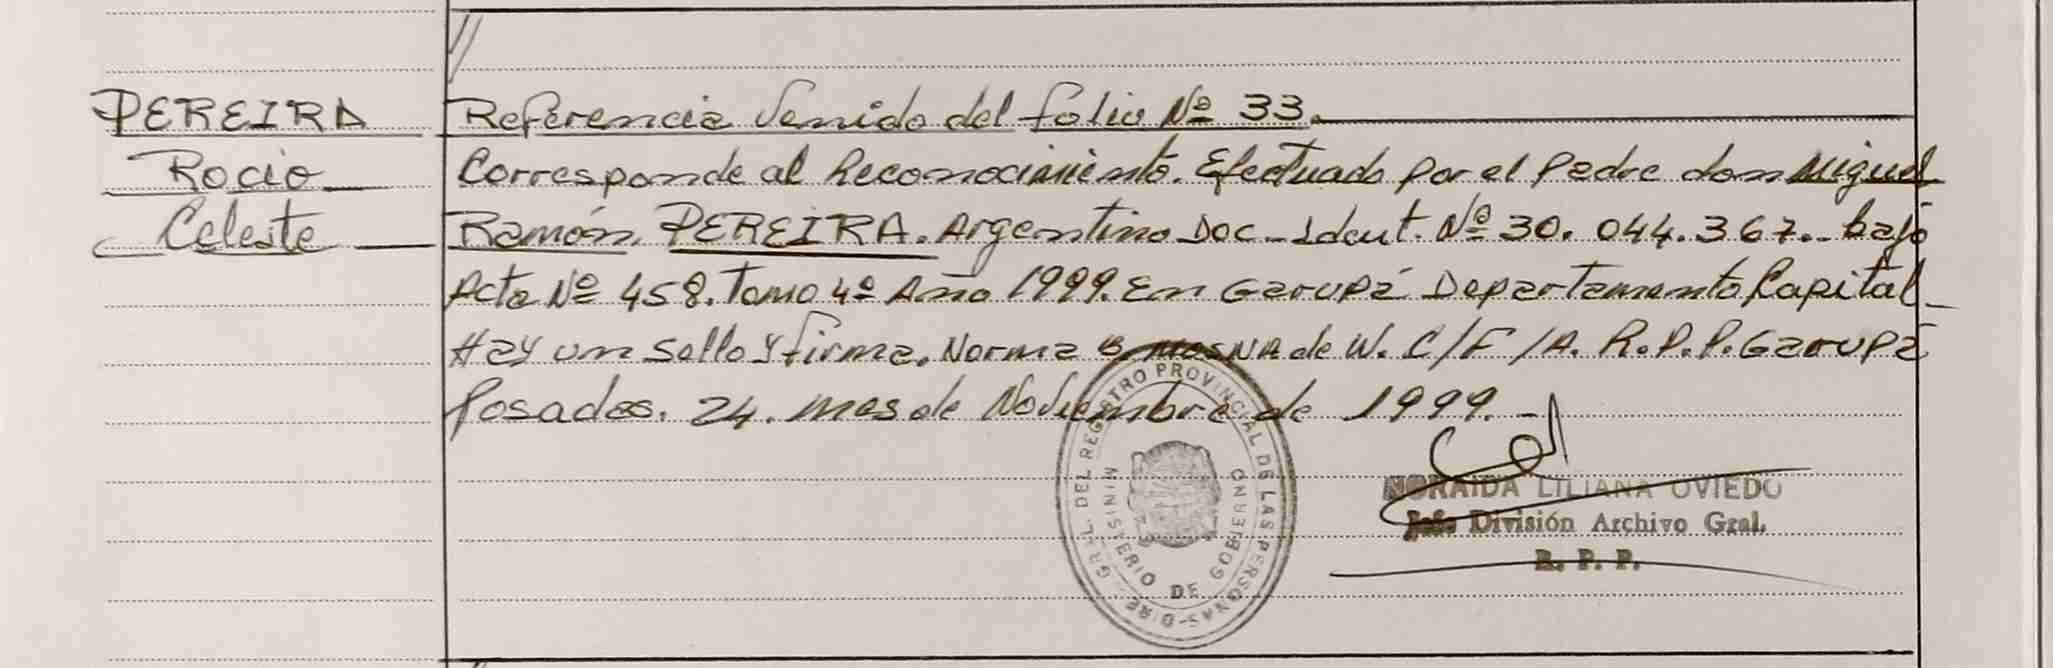 PEREIRA
Rocio
Celeste
Referencia Venido del folio Nº 33.
Corresponde al Reconocimiento. Efectuado por el padre don Miguel
Ramón. PEREIRA. Argentino Doc_Ident. Nº 30.044.367._ bajo
Acta Nº 458. Tomo 4º Año 1999. En Garupá Departamento Capital_
Hay un sello y firma. Norma B. de W. C/F/A. R.P.P. Garupá
Posadas. 24. mes de Noviembre de 1999._
DEL REGISTRO PROVINCIAL DE LAS PERSONAS
MINISTERIO DE GOBIERNO
NORAIDA LILIANA OVIEDO
Jefe División Archivo Gral.
R. P. P.